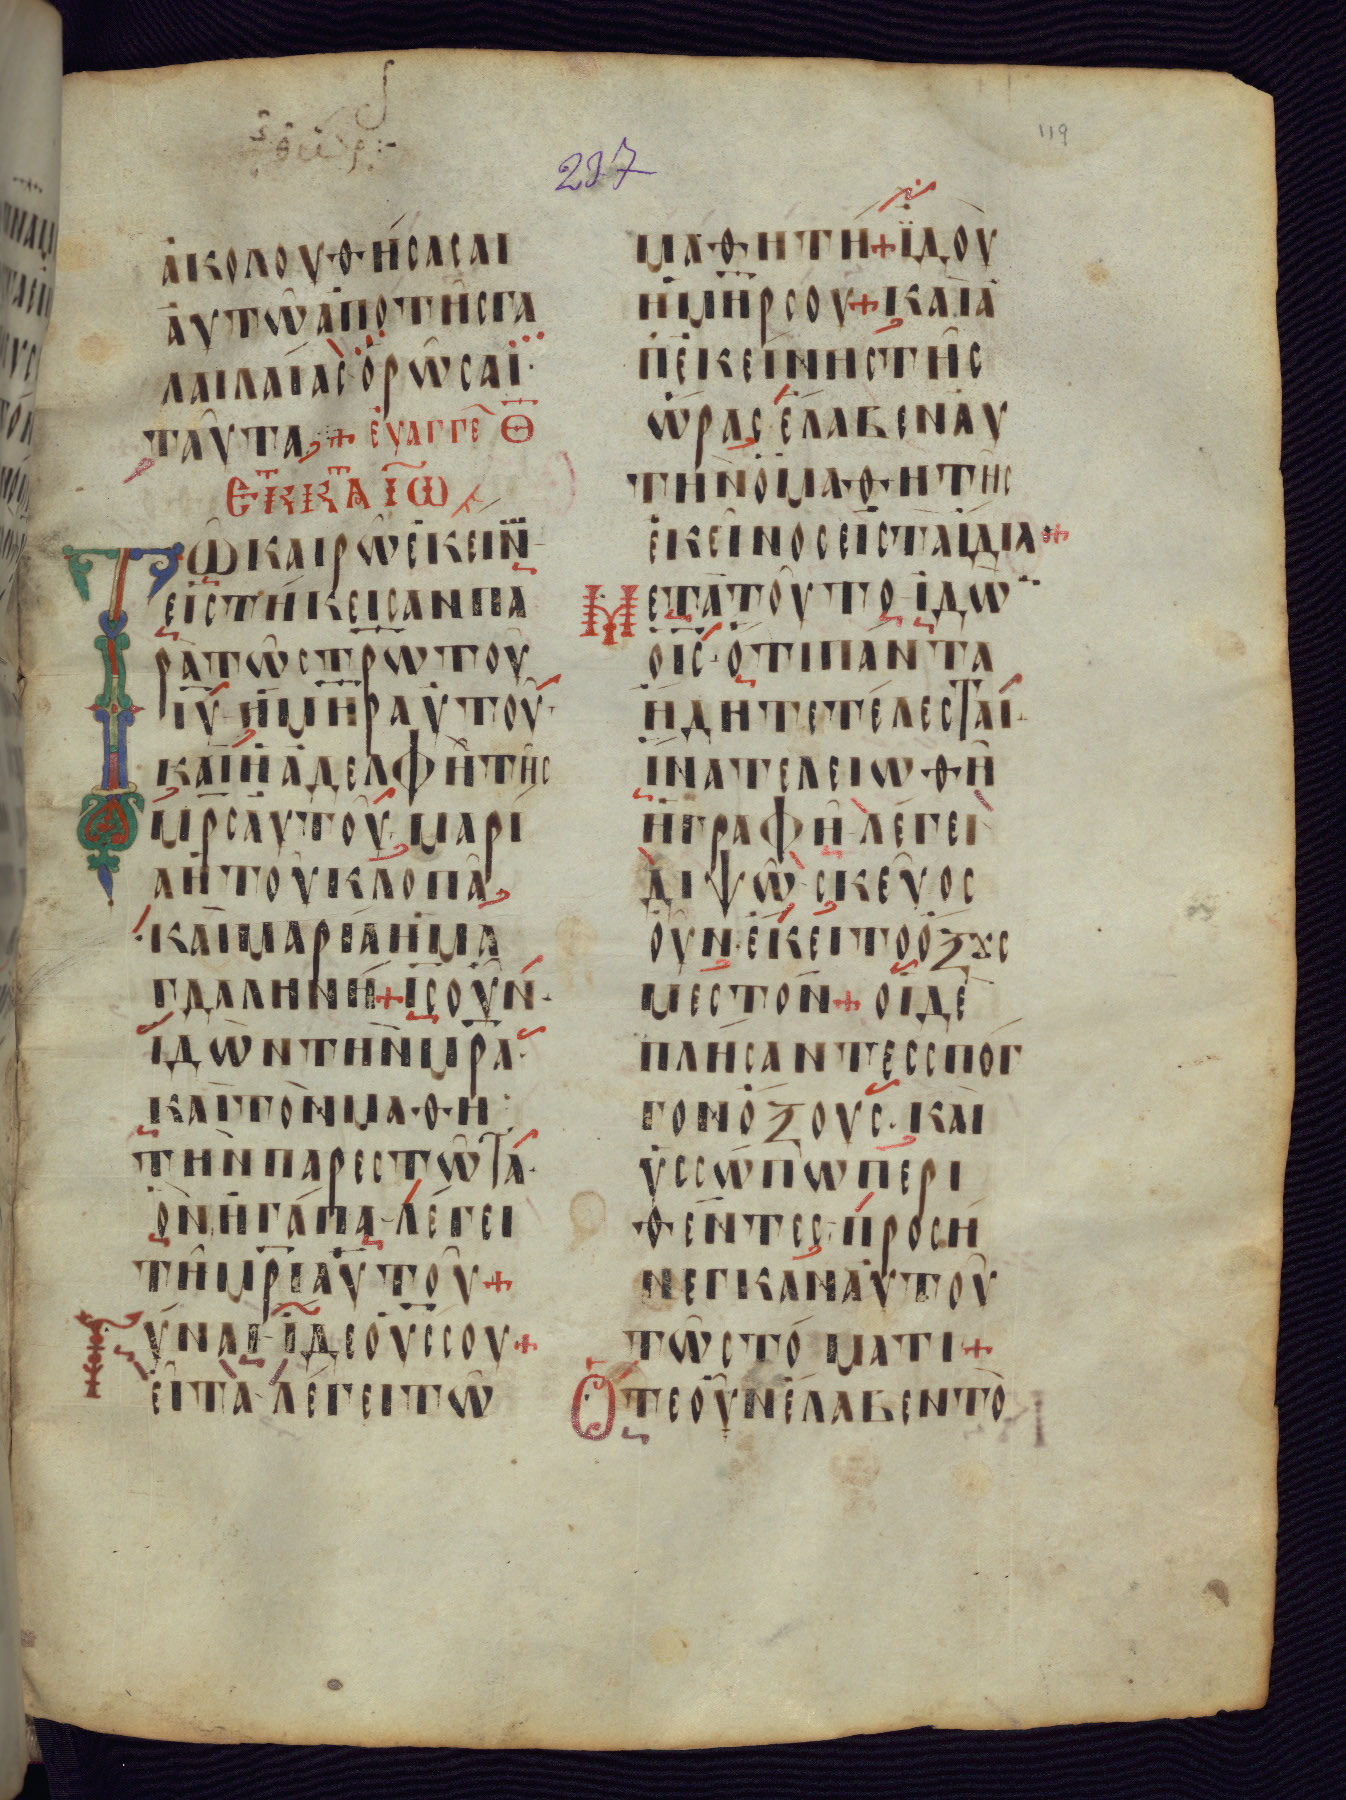 119
237
ἀκολουθήσασαι
ἀυτῶ ἀπο τῆς γα
λιλαίας ὁρῶσαι
ταῦτα + ἐυαγγε Θ
ΕΚ Κ̅Τ̅ ΙΩ
Τῶ καιρῶ ἐκείν
εἱστήκεισαν πα
ρὰ τῶ στρω του
ιυ ἡ μηρ ἀυτοῦ
καὶ ἡ ἀδελφὴ τῆς
μρς ἀυτοῦ μαρί
α ἡ τοῦ κλοπᾶ
καὶ μαρία ἡ μα
γδαληνή + ις οὖν
ἰδὼν τὴν μρα
καὶ τον μαθη
τὴν παρεστῶτα
ὃν ἠγάπα λέγει
τῆ μρι ἀυτοῦ +
Γύναι ἴδε ὁ υς σου +
εἶτα λέγει τῶ
μαθητῆ + ἰδοὺ
ἡ μηρ σου + καὶ ἀ
π ἐκείνης τῆς
ὥρας ἔλαβεν ἀυ
τὴν ὁ μαθητὴς
ἐκεῖνος εἰς τα ἴδια +
Μετὰ τοῦτο ἰδὼ
ὁ ις ὅτι πάντα
ἤδη τετέλεσται
ἵνα τελειωθῆ
ἡ γραφὴ λέγει
διψῶ σκεῦος
οὖν ἔκειτο ὄξους
μεστόν + οἱ δὲ
πλήσαντες σπόγ
γον ὄξους καὶ
ὑσσώπω περι
θέντες προσή
νεγκαν ἀυτοῦ
τῶ στόματι +
Ὅτε οὖν ἔλαβεν τὸ